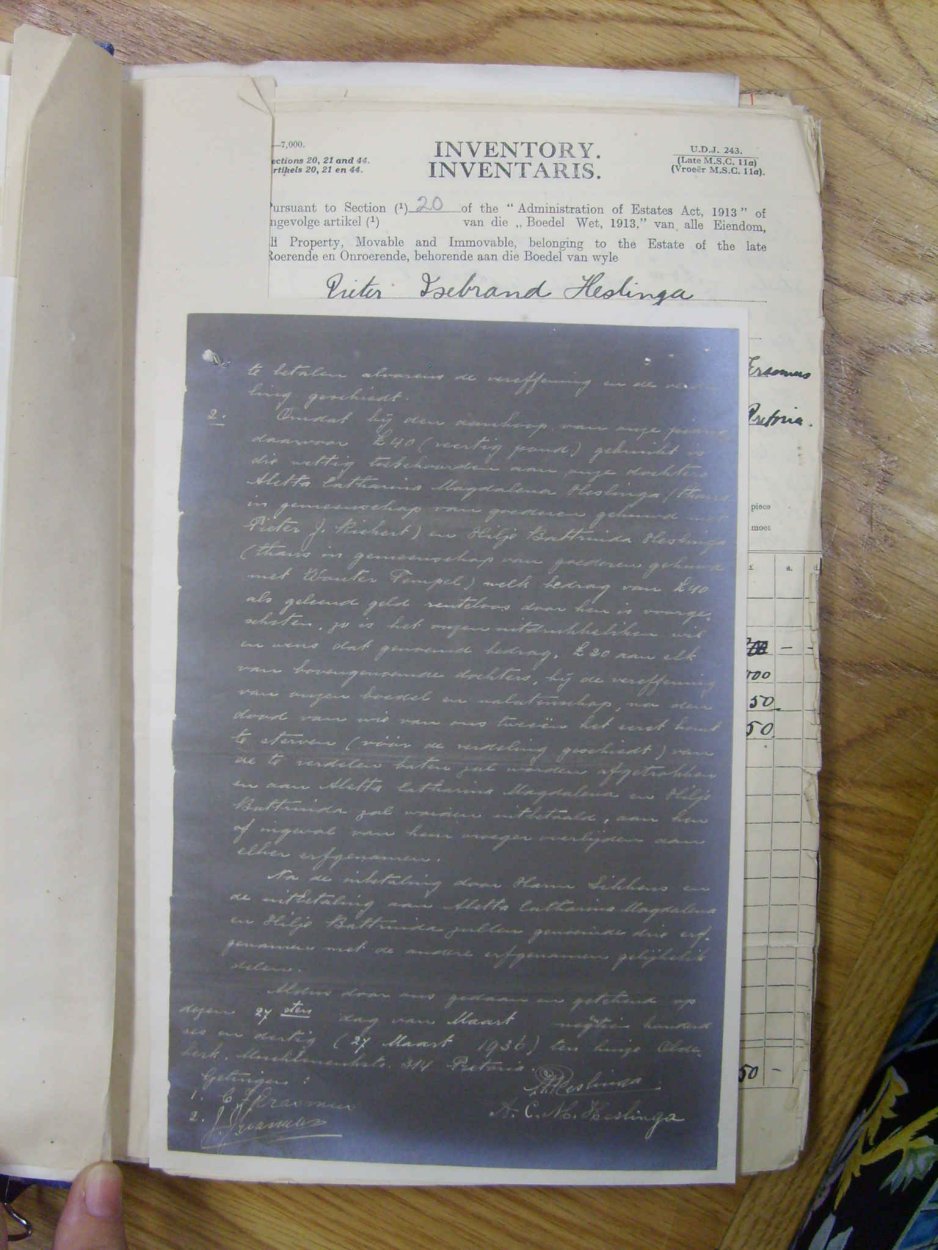 —7,000.
ections 20, 21 and 44.
rtikels 20, 21 en 44.
INVENTORY.
INVENTARIS.
U.D.J. 243.
(Late M.S.C. 11a)
(Vroeër M.S.C. 11a).
ursuant to Section (¹) 20 of the " Administration of Estates Act, 1913 " of
ngevolge artikel (¹) van die „ Boedel Wet, 1913," van alle Eiendom,
ll Property, Movable and Immovable, belonging to the Estate of the late
Roerende en Onroerende, behorende aan die Boedel van wyle
Pieter Isebrand Heslinga
te betalen alvorens de vereffening en de
ling geschiedt.
2. Omdat bij den aankoop van onze piano
daarvoor £40 (veertig pond) gebruikt is
die wettig toebehoorden aan onze dochters
Aletta Catharina Magdalena Heslinga (thans
in gemeenschap van goederen gehuwd met
Pieter J. Richert) en Hilje Battruida Heslinga
(thans in gemeenschap van goederen gehuwd
met Wouter Tempel) welk bedrag van £40
als geleend geld renteloos door hen is voorge-
schoten, zo is het onzen uitdrukkeliken wil
en wens dat genoemd bedrag, £20 aan elk
van bovengenoemde dochters, bij de vereffening
van onzen boedel en nalatenschap, na den
dood van wie van ons tweeën het eerst komt
te sterven (vóór de verdeling geschiedt) van
de te verdelen baten zal worden afgetrokken
en aan Aletta Catharina Magdalena en Hilje
Battruida zal worden uitbetaald, aan hen
of ingeval van hun vroeger overlijden aan
elker erfgenamen.
Na de inbetaling door Harm Sikkens en
de uitbetaling aan Aletta Catharina Magdalena
en Hilje Battruida zullen genoemde drie erf-
genamen met de andere erfgenamen gelijkelik
delen.
Aldus door ons gedaan en getekend op
dezen 27sten dag van Maart negentien honderd
zes en dertig (27 Maart 1936) ten huize
314 Pretoria.
Getuigen:
1. C. J. Erasmus
2. J. J. Erasmus
Heslinga
A. C. M. Heslinga
Erasmus
Pretoria.
piece
moet
£ s. d.
000
50
50
50 -